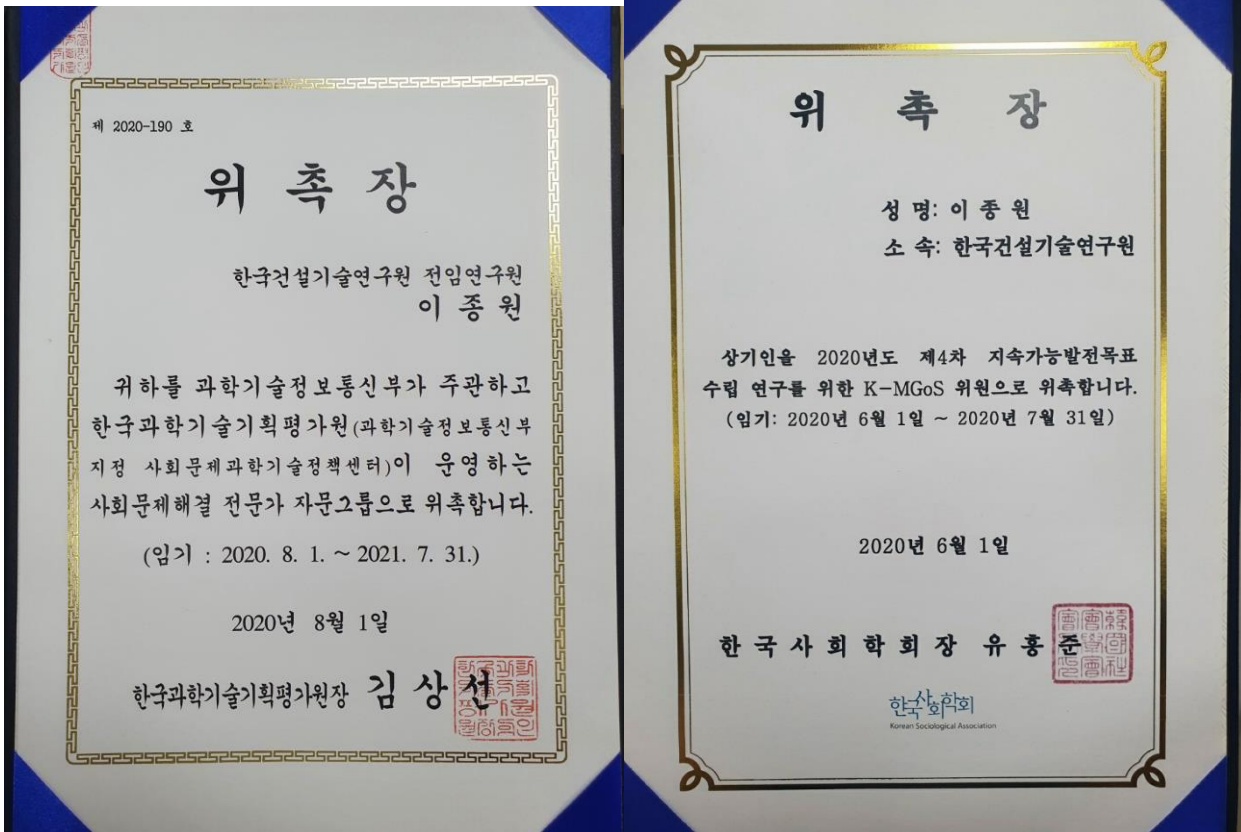 제 2020-190 호
위 촉 장
한국건설기술연구원 전임연구원
이 종 원
귀하를 과학기술정보통신부가 주관하고
한국과학기술기획평가원(과학기술정보통신부
지정 사회문제과학기술정책센터)이 운영하는
사회문제해결 전문가 자문그룹으로 위촉합니다.
(임기 : 2020. 8. 1. ~ 2021. 7. 31.)
2020년 8월 1일
한국과학기술기획평가원장 김 상 선
위 촉 장
성 명: 이 종 원
소 속: 한국건설기술연구원
상기인을 2020년도 제4차 지속가능발전목표
수립 연구를 위한 K-MGoS 위원으로 위촉합니다.
(임기: 2020년 6월 1일 ~ 2020년 7월 31일)
2020년 6월 1일
한 국 사 회 학 회 장 유 홍 준
한국사회학회
Korean Sociological Association